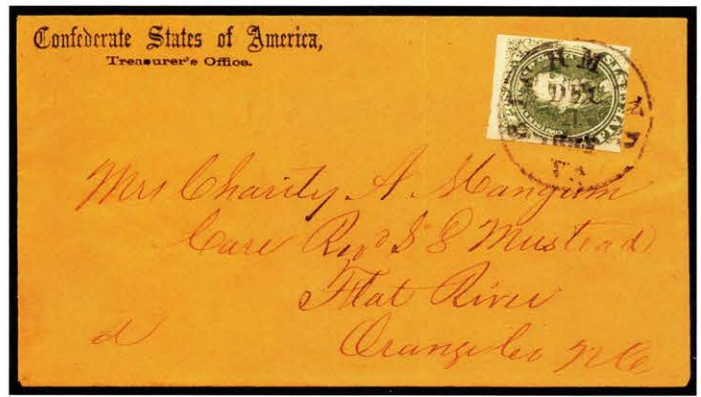 Confederate States of America,
Treasurer's Office.
RICHMOND
DEC
VA
Mrs Charity A. Mangum
Care Revd S S Mustead
Flat River
Orange Co N C
d